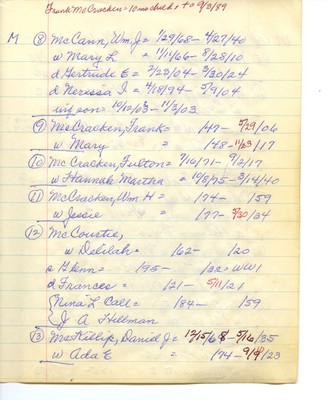 Frank McCracken = 10 mo check to 9/3/89
M (8) McCann, Wm. J = 1/29/68 - 4/27/40
w Mary L = 11/11/66 - 8/28/10
d Gertrude E = 2/22/04 - 3/30/24
d Nerissa I. = 4/18/94 - 5/9/04
inf son = 10/12/03 - 11/3/03
(9) McCracken, Frank = 147 - 5/29/06
w Mary = 148 - 11/23/17
(10) McCracken, Fulton = 7/16/71 - 9/2/17
w Hannah Martha = 10/8/75 - 3/14/40
(11) McCracken, Wm. H = 174 - 159
w Jessie = 177 - 9/30/34
(12) McCoustie,
w Delilah = 162 - 120
s Glenn = 195 - 132 = WW1
d Frances = 121 - 5/11/21
{Nina L Call = 184 - 159
{J A Hillman
(13) McKillip, Daniel J = 12/15/68 - 5/16/35
w Ada E = 174 - 9/4/23